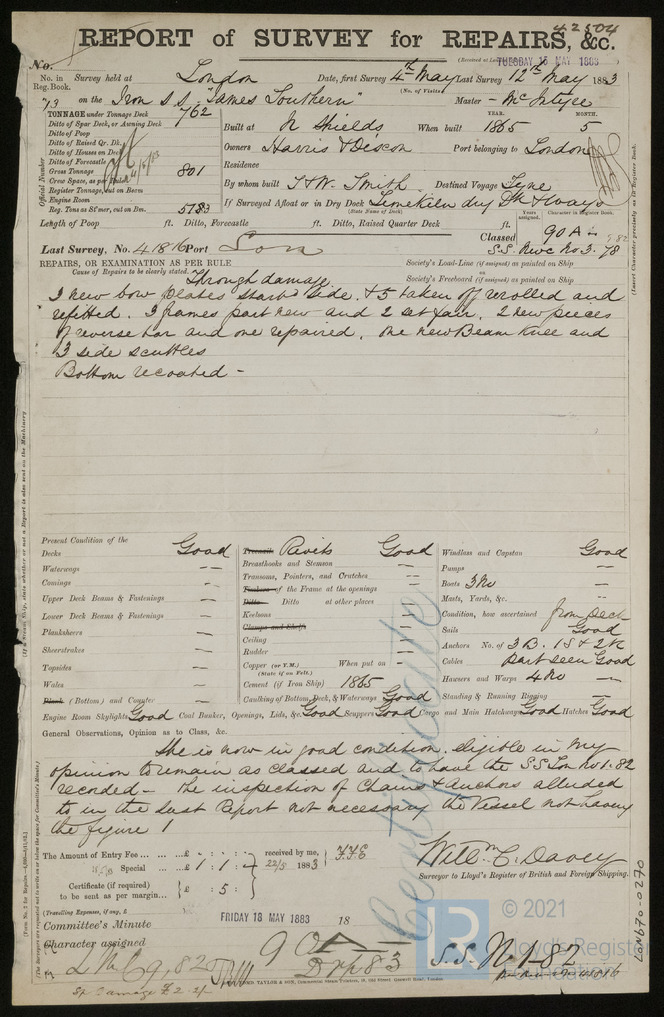 42504
REPORT of SURVEY for REPAIRS, &c.
TUESDAY 15 MAY 1883
No.
No. in Reg. Book. Survey held at London Date, first Survey 4th May Last Survey 12th May 1883
(No. of Visits)
73 on the Iron S.S. "James Southern" Master Mc Intyre
TONNAGE under Tonnage Deck 762
Ditto of Spar Deck, or Awning Deck
Ditto of Poop
Ditto of Raised Qr. Dk.
Ditto of Houses on Deck
Ditto of Forecastle
Gross Tonnage 801
Crew Space, as per
Register Tonnage, cut on Beam
Engine Room
Reg. Tons as St'mer, cut on Bm. 5183
Official Number
YEAR. MONTH.
Built at N Shields When built 1865 5
Owners Harris & Dixon Port belonging to London
Residence
By whom built T & W. Smith Destined Voyage Tyne
If Surveyed Afloat or in Dry Dock Limekiln dry Dk & ways
(State Name of Dock)
Length of Poop ft. Ditto, Forecastle ft. Ditto, Raised Quarter Deck ft.
Years assigned. Character in Register Book.
Classed 90 A
S.S. Nwc No 3. 78
(Insert Character precisely as in Register Book.
Last Survey, No. 41816 Port Lon
REPAIRS, OR EXAMINATION AS PER RULE
Cause of Repairs to be clearly stated.
Society's Load-Line (if assigned) as painted on Ship
Society's Freeboard (if assigned) as painted on Ship
Through damage
3 new bow plates starbd side. & 5 taken off rerolled and
refitted. 3 frames part new and 2 set fair. 2 new pieces
of reverse bar and one repaired. one new Beam knee and
3 side scuttles
Bottom recoated -
Present Condition of the
Decks Good
Waterways
Comings
Upper Deck Beams & Fastenings
Lower Deck Beams & Fastenings
Planksheers
Sheerstrakes
Topsides
Wales
Plank (Bottom) and Counter
Engine Room Skylights Good Coal Bunker, Openings, Lids, &c. Good Scuppers Good Cargo and Main Hatchways Good Hatches Good
Treenails Rivits Good
Breasthooks and Stemson
Transoms, Pointers, and Crutches
Timbers of the Frame at the openings
Ditto Ditto at other places
Keelsons
Clamps and Shelfs
Ceiling
Rudder
Copper (or Y.M.) When put on
(State if on Felt.)
Cement (if Iron Ship) 1865
Caulking of Bottom, Deck, & Waterways Good
Windlass and Capstan Good
Pumps
Boats 3 No
Masts, Yards, &c.
Condition, how ascertained from deck
Sails Good
Anchors No. of 3 B. 1 S & 2 K
Cables part seen Good
Hawsers and Warps 4 No
Standing & Running Rigging
General Observations, Opinion as to Class, &c.
She is now in good condition. eligible in my
opinion to remain as classed and to have the S.S Lon No 1. 82
recorded - the inspection of Chains & Anchors alluded
to in the last Report not necessary the Vessel not having
the figure 1
Certificate
The Amount of Entry Fee £ : : received by me,
Special £ 1 : 1 : 22/5 1883
Certificate (if required) £ : 5 :
to be sent as per margin.
(Travelling Expenses, if any, £
Willm C. Davey
Surveyor to Lloyd's Register of British and Foreign Shipping.
Committee's Minute FRIDAY 18 MAY 1883 18
Character assigned 90 A
Drp 83
S.S. No 1-82
LMC 9,82
LR © 2021
Lloyd's Register
LON670-0270